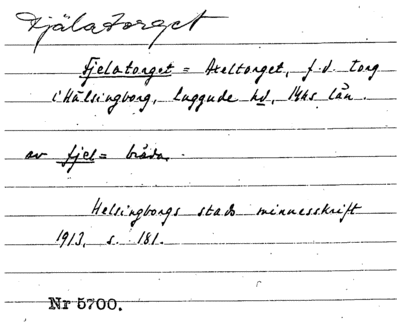 Fjälatorget
Fjelatorget = Axeltorget, f.d. torg
i Hälsingborg, Luggude hd, Mhs län.
av fjel = bräda.
Helsingborgs stads minnesskrift
1913, s. 181.
Nr 5700.